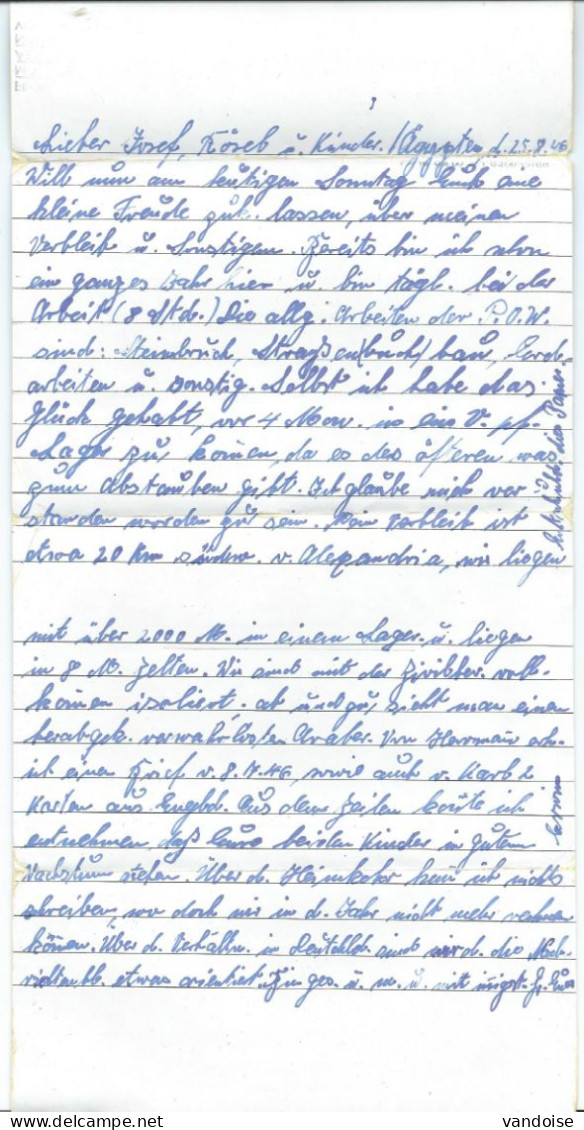 Lieber Josef, Rösel u. Kinder. / Ägypten d. 25.8.46
Will nun am heutigen Sonntag Euch eine
kleine Freude zuk. lassen, über meinen
Verbleib u. Sonstigem. Bereits bin ich schon
ein ganzes Jahr hier u. bin tägl. bei der
Arbeit (8 Std.) Die allg. Arbeiten der P.O.W.
sind: Steinbruch, Strassen(buch)bau, Erd-
arbeiten u. sonstig. Selbst ich habe das
Glück gehabt, vor 4 Mon. in ein V. pf.
Lager zu kommen, da es des öfteren was
zum abstauben gibt. Ich glaube mich ver-
standen worden zu sein. Mein Verbleib ist
etwa 20 Km südw. v. Alexandria, wir liegen
mit über 2000 M. in einem Lager u. liegen
in 8 M. Zelten. Wir sind mit der Zivilbev. voll-
kommen isoliert. ab und zu sieht man einen
herabgek. verwahrlosten Araber. Von Hermann erh.
ich einen Brief v. 8.7.46, sowie auch v. Karl 2
Karten aus Engld. Aus dem Zeilen konnte ich
entnehmen, dass Eure beiden Kinder in gutem
Wachstum stehen. Über d. Heimkehr kann ich nichts
schreiben, wo doch wir in d. Jahr nicht mehr rechnen
können. Über d. Verhältn. in Deutschld. sind wir d. die Nach-
richtenbl. etwas orientiert. Bin ges. u. m. u. mit innigst. Gr. Euer
vandoise